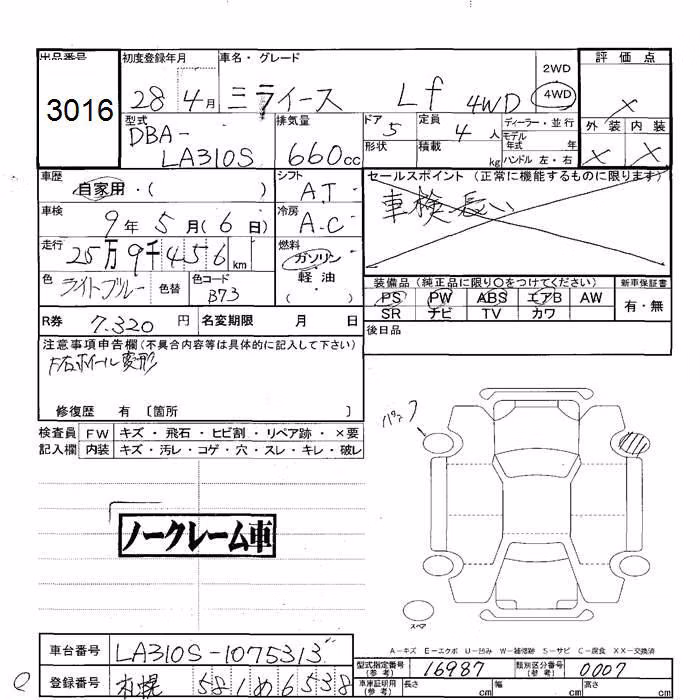 出品番号 初度登録年月 車名・グレード 評価点
3016 28 4月 ミライース Lf 4WD 2WD 4WD ×
型式 排気量 ドア 定員 ディーラー・並行 外装 内装
DBA-LA310S 660cc 5 4人 モデル年式 年 × ×
形状 積載 kg ハンドル 左・右
車歴 自家用・( ) シフト AT セールスポイント (正常に機能するものに限ります)
車検 9年5月(6日) 冷房 A-C 車検長い
走行 25万9千456km 燃料 ガソリン 軽油 ( )
色 ライトブルー 色替 色コード B73 装備品 (純正品に限り○をつけてください) 新車保証書
PS PW ABS エアB AW 有・無
SR ナビ TV カワ
R券 7.320円 名変期限 月 日 後日品
注意事項申告欄 (不具合内容等は具体的に記入して下さい)
F右ホイール変形
修復歴 有 〔箇所 〕
検査員 FW キズ・飛石・ヒビ割・リペア跡・×要
記入欄 内装 キズ・汚レ・コゲ・穴・スレ・キレ・破レ
パンク
ノークレーム車
スペア
A-キズ E-エクボ U-凹み W-補修跡 S-サビ C-腐食 XX-交換済
車台番号 LA310S-1075313 型式指定番号(参考) 16987 類別区分番号(参考) 0007
登録番号 札幌 581 め 6538 車庫証明用(参考) 長さ cm 幅 cm 高さ cm